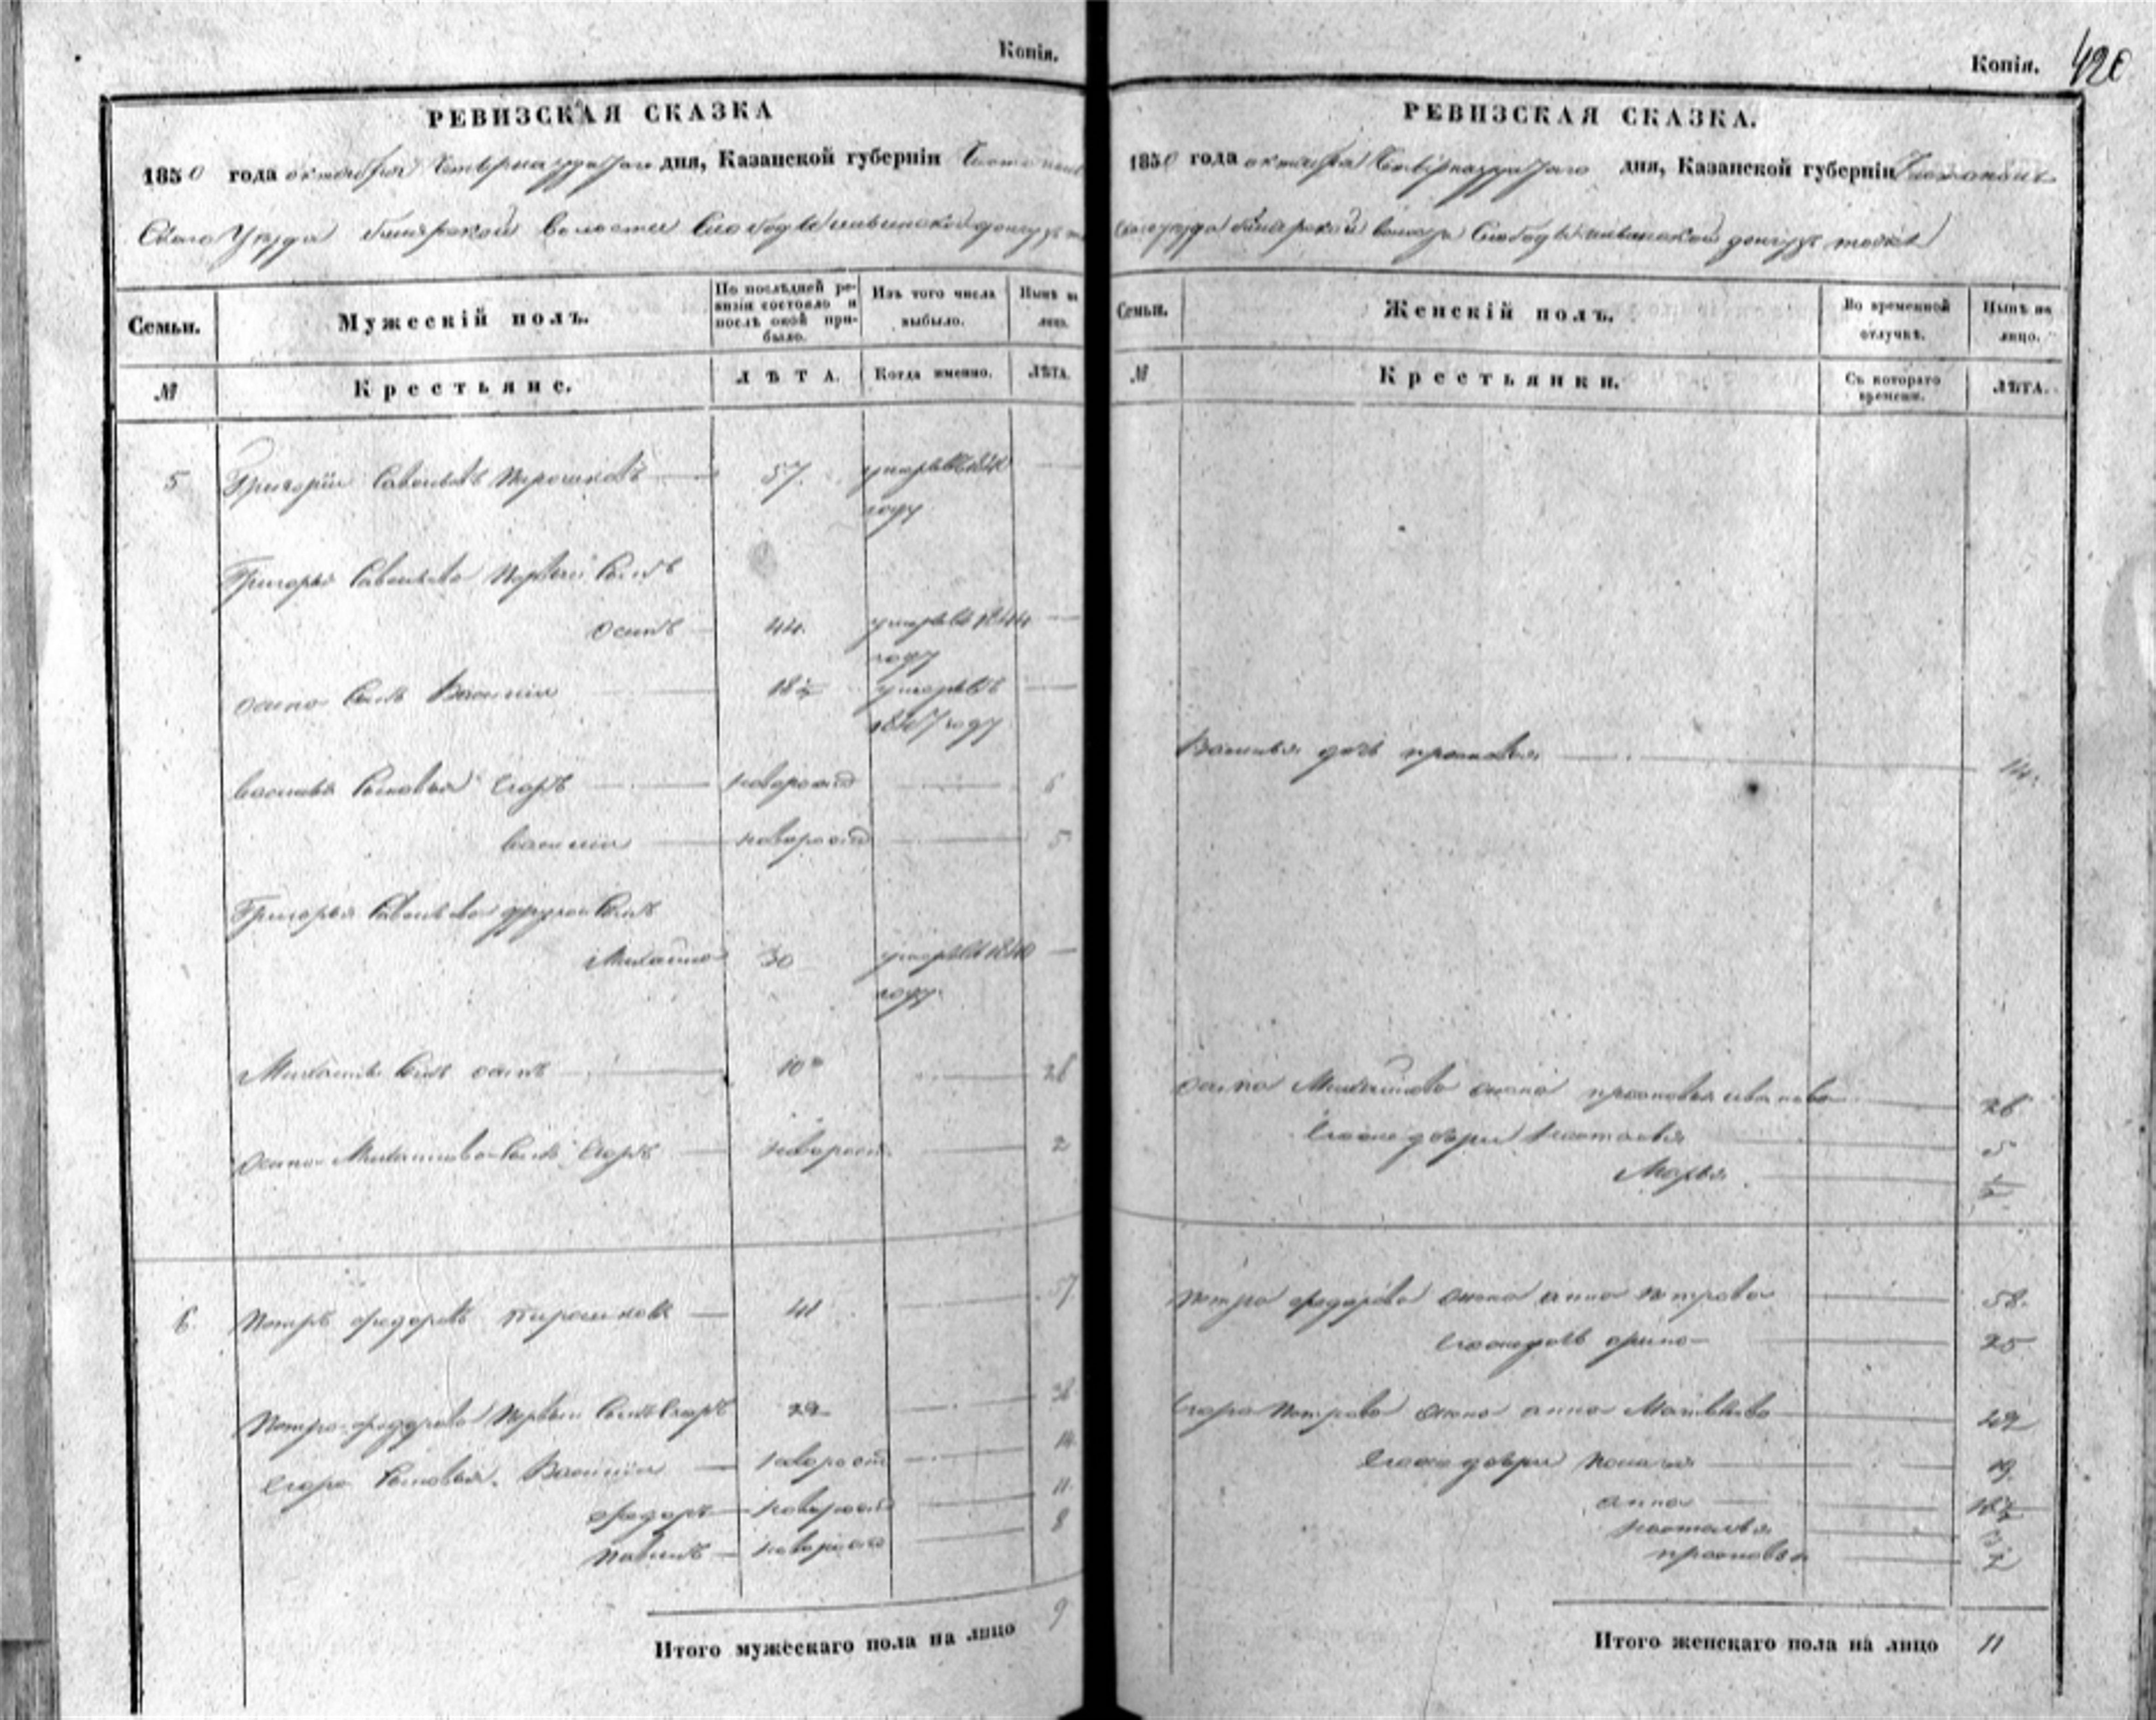 Копія.
РЕВИЗСКАЯ СКАЗКА
1850 года октября Четвернадцатаго дня, Казанской губерніи
Скаго Уезда билярской волости Слободы
Семьи.
Мужескій полъ.
По послѣдней ревизіи состояло и послѣ оной прибыло.
Изъ того числа выбыло.
Нынѣ на лицо.
№
Крестьяне.
ЛѢТА.
Когда именно.
ЛѢТА.
5 Григорій Савельевъ Пирошковъ 57. умеръ въ
году
Григорья Савельева Первый Сынъ
Осипъ 44. умеръ въ 1844
году
Осипа Сынъ Василій 18½ умеръ въ
1847 году
Василья Сыновья Егоръ новорожд 6
Василій новорожд 5
Григорья Савельева другой Сынъ
Михайло 30 умеръ въ
году
Михайлы Сынъ осипъ 10 26
Осипа Михайлова Сынъ Егоръ новорож. 2
6. Петръ федоровъ Пирошковъ 41 57
Петра федорова Первый Сынъ Егоръ 38
Егора Сыновья Василій новорожд 14
федоръ новорожд 11
Павелъ новорожд 8
Итого мужескаго пола на лицо 9
Копія. 420
РЕВИЗСКАЯ СКАЗКА.
1850 года октября Четвернадцатаго дня, Казанской губерніи Чистополь
Скаго уезда билярской волости Слободы
Семьи.
Женскій полъ.
Во временной отлучкѣ.
Нынѣ на лицо.
№
Крестьянки.
Съ котораго времени.
ЛѢТА.
Василья дочь прасковья 14.
Осипа Михайлова жена прасковья иванова 26
Егоже дочери Настасья 5
Марья ½
Петра федорова жена анна Петрова 58.
Егоже дочь арина 25
Егора Петрова жена анна Матвеева
Егоже дочери Пелагея 19
анна
Настасья
прасковья
Итого женскаго пола на лицо 11